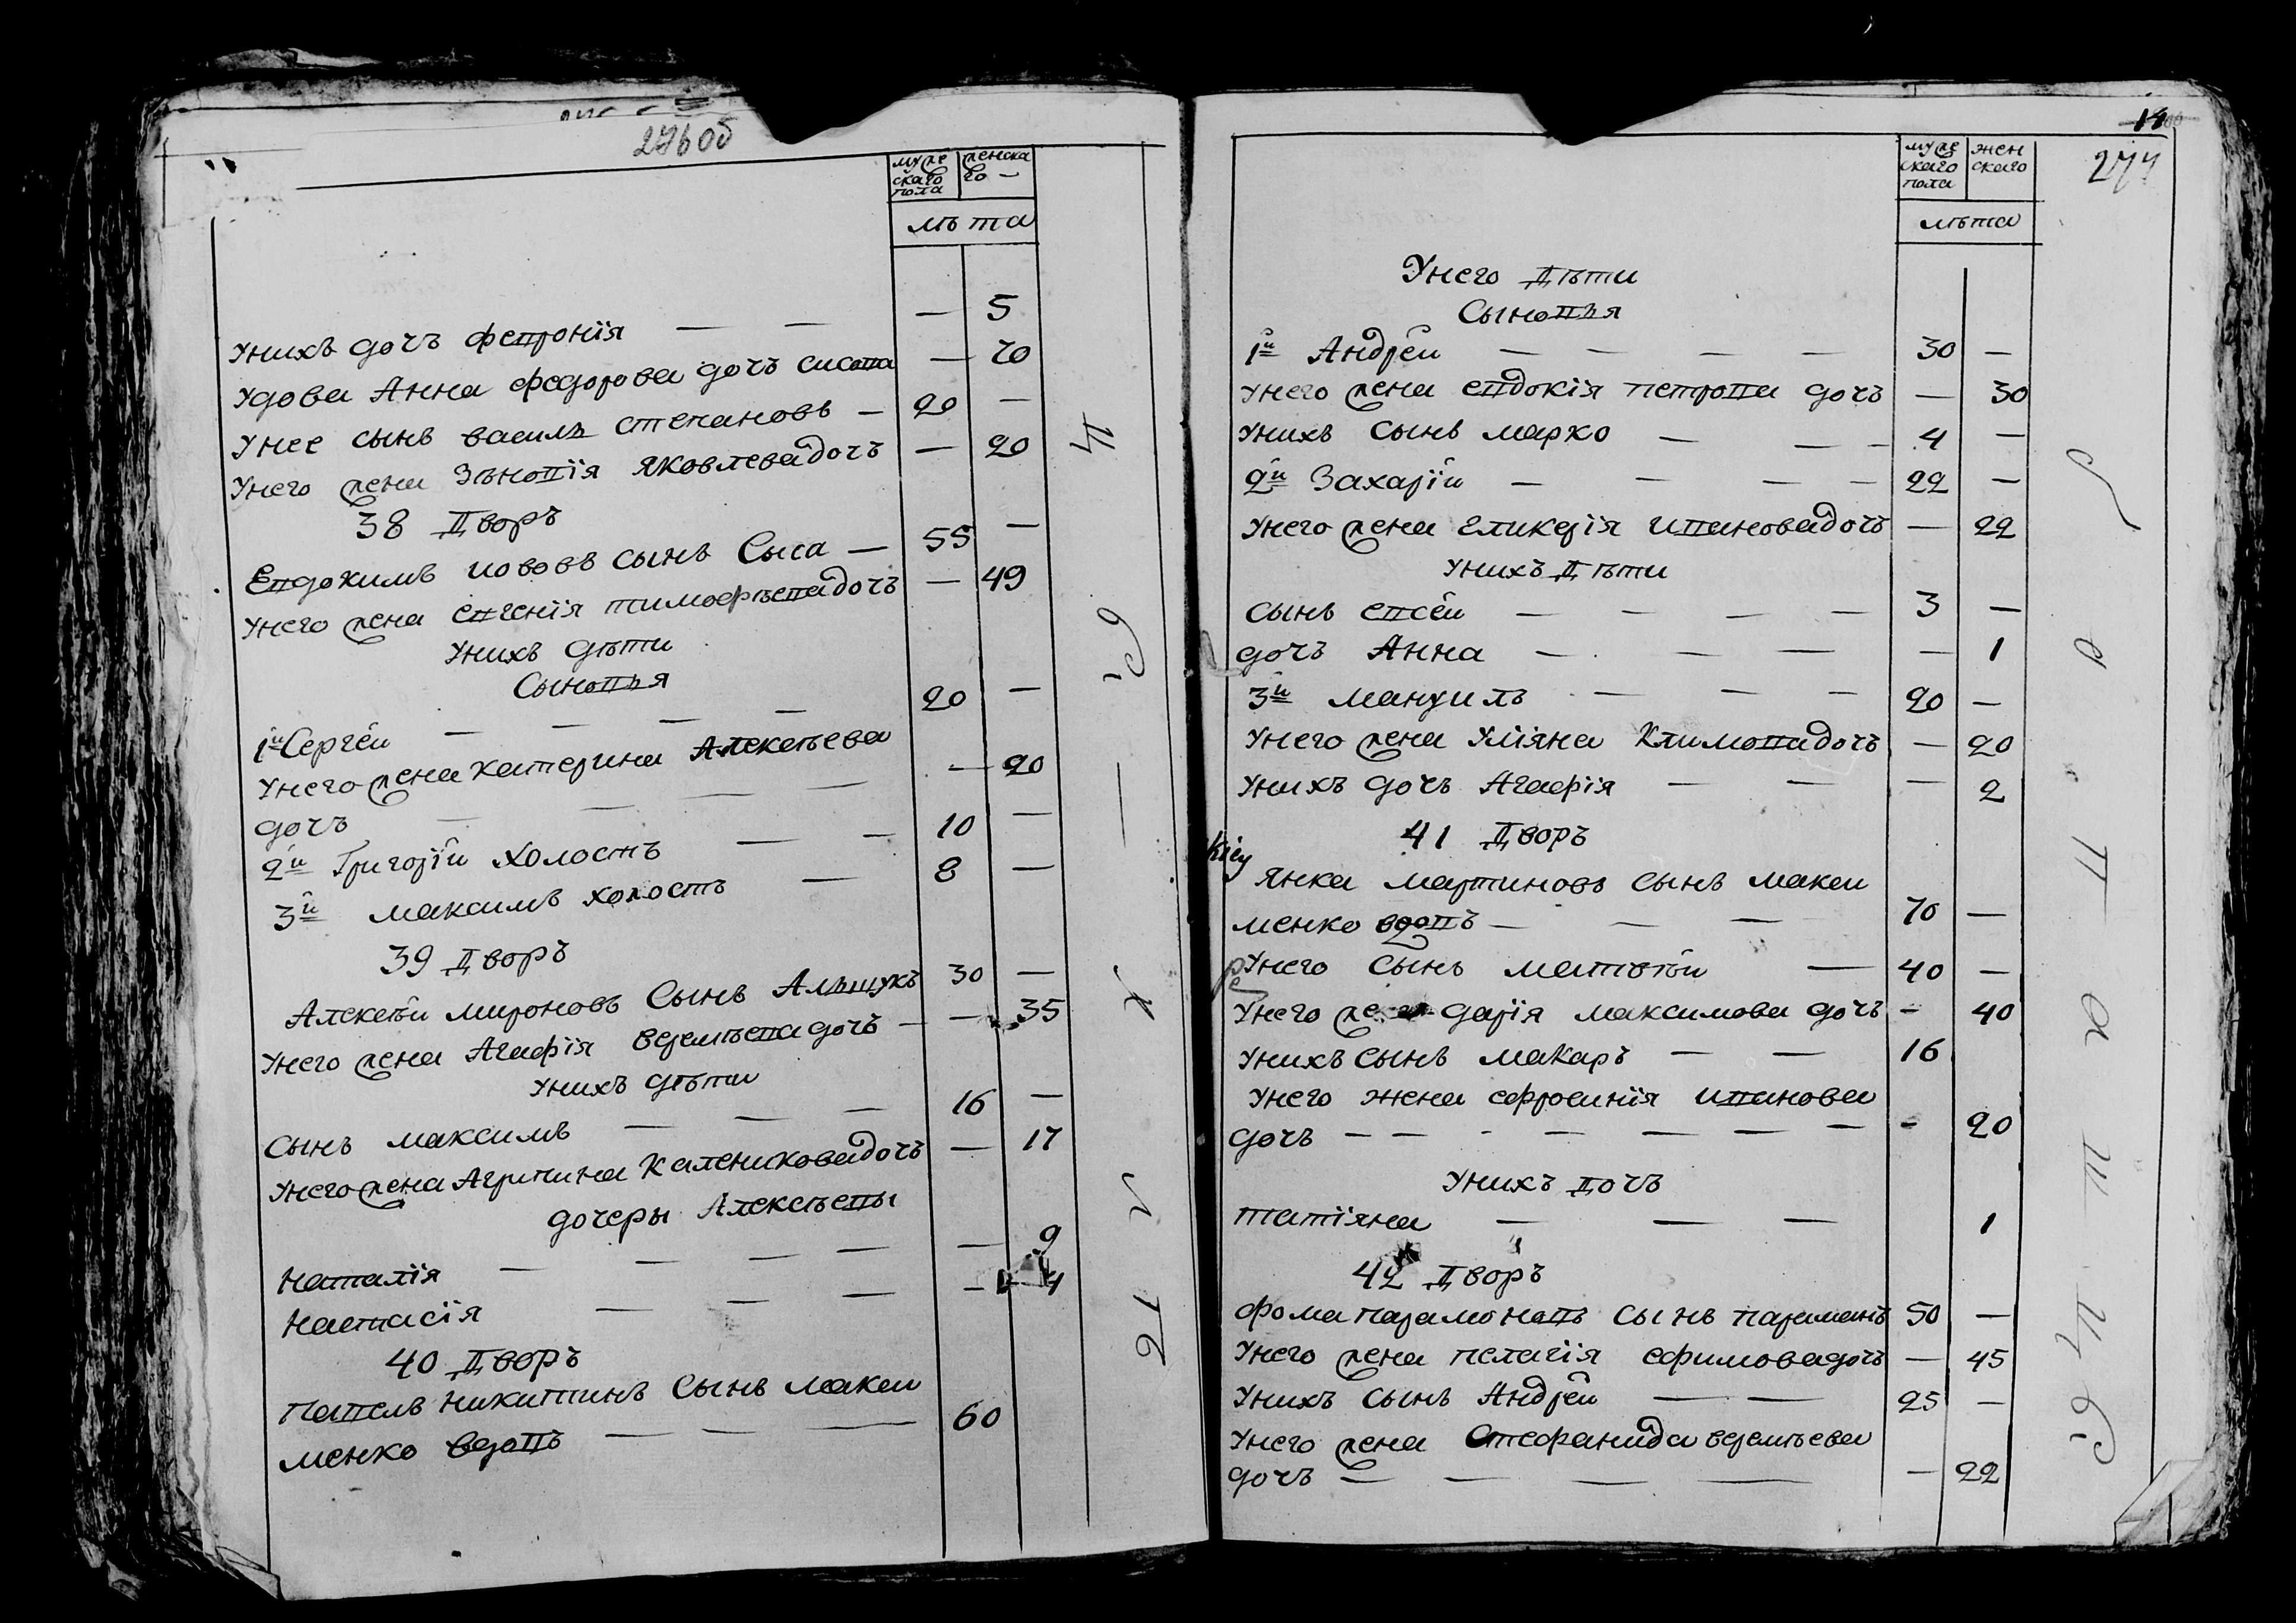 276об
мужескаго пола
женскаго
лѣта
Унихъ дочъ февронїя — — — 5
Удова Анна федорова дочъ сисова — 70
Унее сынъ василь степановъ — 20 —
Унего жена Зѣновїя Яковлева дочъ — 20
38 Дворъ
Евдокимъ иововъ сынъ Сыса — 55 —
Унего жена евгенїя тимофѣева дочъ — 49
Унихъ дѣти
Сыновья
1й Сергей — — — — 20 —
Унего жена катерина Алексѣева
дочъ — — — — — 20
2й Григорїй холостъ — — 10 —
3й максимъ холостъ — 8 —
39 Дворъ
Алексѣй мироновъ Сынъ Альшукъ 30 —
Унего жена Агафїя веремѣева дочъ — — 35
Унихъ дѣти
Сынъ максимъ — — — 16 —
Унего жена Агрипина Каленикова дочъ — 17
дочеры Алексѣевы
Наталїя — — — — — 9
Настасїя — — — — 4
40 Дворъ
Павелъ Никитинъ Сынъ макси
менко вдовъ — — — 60
14
277
мужескаго пола
женскаго
лѣта
Унего Дѣти
Сыновья
1й Андрей — — — — 30 —
Унего жена евдокїя петрова дочъ — 30
Унихъ Сынъ марко — — — 4 —
2й Захарїй — — — — 22 —
Унего жена Гликерїя иванова дочъ — 22
Унихъ Дѣти
Сынъ евсей — — — — 3 —
дочъ Анна — — — — 1
3й мануилъ — — — 20 —
Унего жена Улїяна Климова дочъ — 20
Унихъ дочъ Агафїя — — — 2
41 Дворъ
Янка мартиновъ сынъ макси
менко вдовъ — — — 70 —
Унего Сынъ матвѣй — 40 —
Унего жена дарїя максимова дочъ — 40
Унихъ Сынъ макаръ — — 16
Унего жена ефросинїя иванова
дочъ — — — — — — — — 20
Унихъ Дочъ
татїяна — — — 1
42 Дворъ
фома парамоновъ сынъ 50 —
Унего жена пелагїя ефимова дочъ — 45
Унихъ Сынъ Андрей — — 25 —
Унего жена Стефанида веремѣева
дочъ — — — — — 22